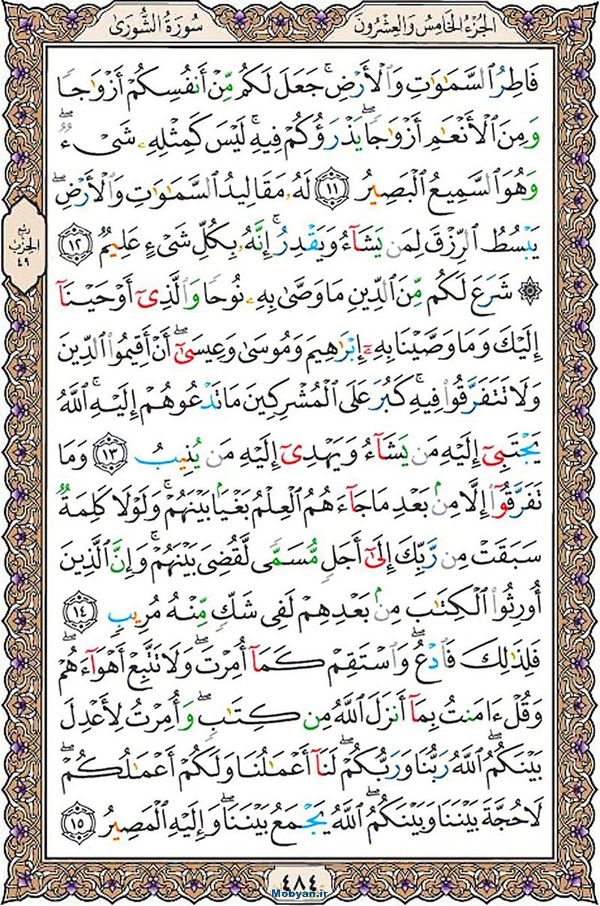 الجزء الخامس والعشرون
سورة الشورى
فَاطِرُ السَّمَٰوَٰتِ وَالْأَرْضِ ۚ جَعَلَ لَكُم مِّنْ أَنفُسِكُمْ أَزْوَٰجًا
وَمِنَ الْأَنْعَٰمِ أَزْوَٰجًا ۖ يَذْرَؤُكُمْ فِيهِ ۚ لَيْسَ كَمِثْلِهِ شَىْءٌ ۖ
وَهُوَ السَّمِيعُ الْبَصِيرُ ﴿١١﴾ لَهُ مَقَالِيدُ السَّمَٰوَٰتِ وَالْأَرْضِ ۖ
يَبْسُطُ الرِّزْقَ لِمَن يَشَآءُ وَيَقْدِرُ ۚ إِنَّهُ بِكُلِّ شَىْءٍ عَلِيمٌ ﴿١٢﴾
ربع الحزب ٤٩
۞ شَرَعَ لَكُم مِّنَ الدِّينِ مَا وَصَّىٰ بِهِ نُوحًا وَالَّذِىٓ أَوْحَيْنَآ
إِلَيْكَ وَمَا وَصَّيْنَا بِهِٓ إِبْرَٰهِيمَ وَمُوسَىٰ وَعِيسَىٰٓ ۖ أَنْ أَقِيمُوا الدِّينَ
وَلَا تَتَفَرَّقُوا فِيهِ ۚ كَبُرَ عَلَى الْمُشْرِكِينَ مَا تَدْعُوهُمْ إِلَيْهِ ۚ اللَّهُ
يَجْتَبِىٓ إِلَيْهِ مَن يَشَآءُ وَيَهْدِىٓ إِلَيْهِ مَن يُنِيبُ ﴿١٣﴾ وَمَا
تَفَرَّقُوٓا إِلَّا مِنۢ بَعْدِ مَا جَآءَهُمُ الْعِلْمُ بَغْيًۢا بَيْنَهُمْ ۚ وَلَوْلَا كَلِمَةٌ
سَبَقَتْ مِن رَّبِّكَ إِلَىٰٓ أَجَلٍ مُّسَمًّى لَّقُضِىَ بَيْنَهُمْ ۚ وَإِنَّ الَّذِينَ
أُورِثُوا الْكِتَٰبَ مِنۢ بَعْدِهِمْ لَفِى شَكٍّ مِّنْهُ مُرِيبٍ ﴿١٤﴾
فَلِذَٰلِكَ فَادْعُ ۖ وَاسْتَقِمْ كَمَآ أُمِرْتَ ۖ وَلَا تَتَّبِعْ أَهْوَآءَهُمْ ۖ
وَقُلْ ءَامَنتُ بِمَآ أَنزَلَ اللَّهُ مِن كِتَٰبٍ ۖ وَأُمِرْتُ لِأَعْدِلَ
بَيْنَكُمُ ۖ اللَّهُ رَبُّنَا وَرَبُّكُمْ ۖ لَنَآ أَعْمَٰلُنَا وَلَكُمْ أَعْمَٰلُكُمْ ۖ
لَا حُجَّةَ بَيْنَنَا وَبَيْنَكُمُ ۖ اللَّهُ يَجْمَعُ بَيْنَنَا ۖ وَإِلَيْهِ الْمَصِيرُ ﴿١٥﴾
٤٨٤
Mobyan.ir